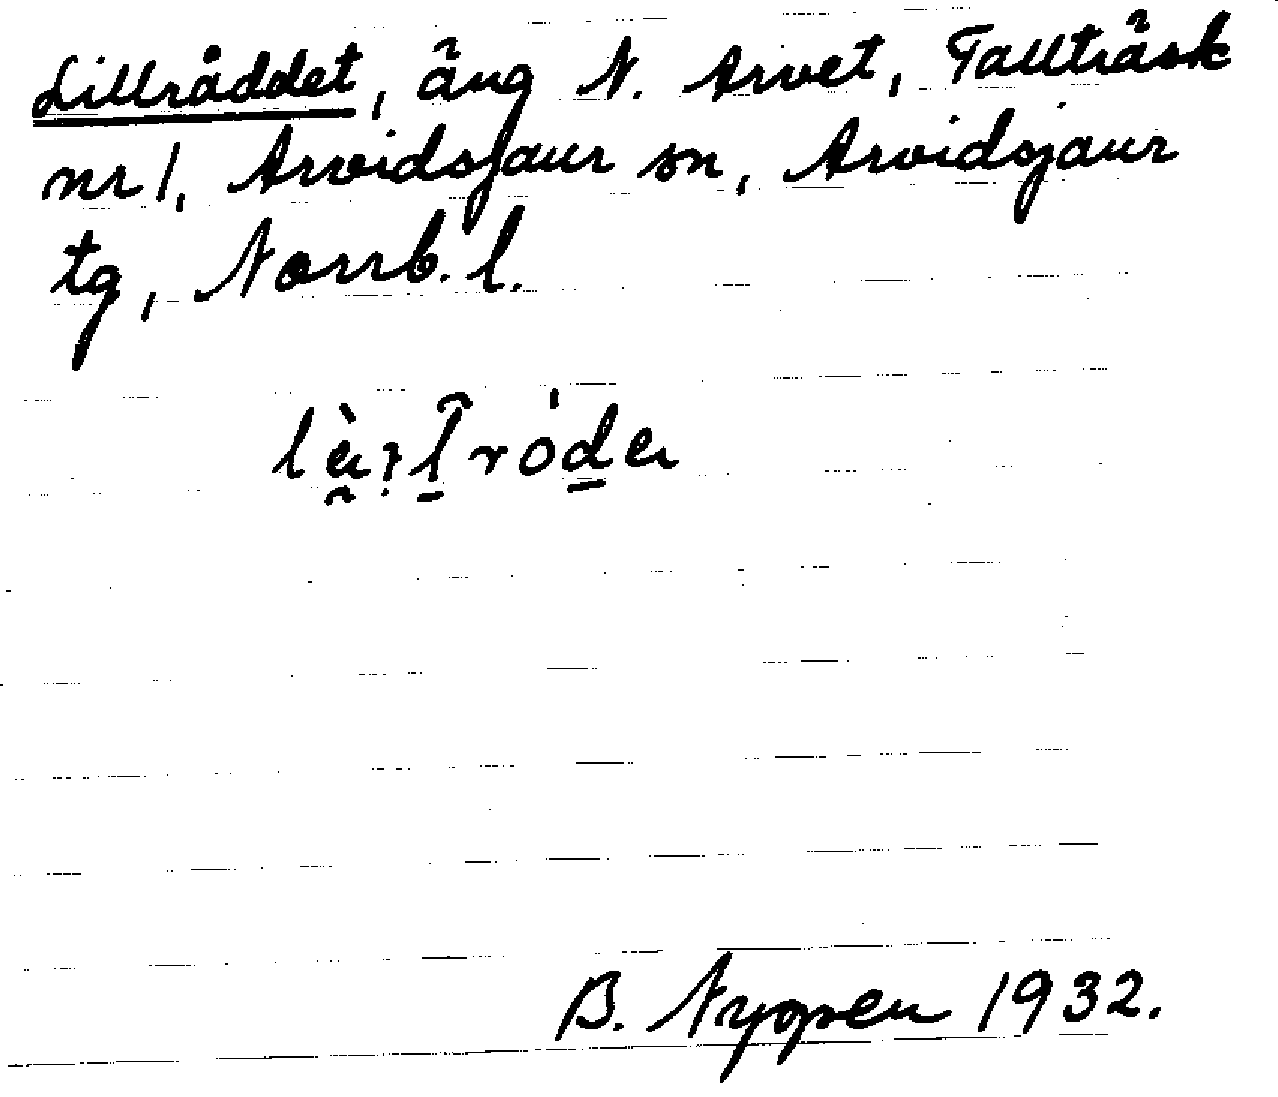 Lillråddet, äng N. Arvet, Tallträsk
nr 1, Arvidsjaur sn, Arvidsjaur
tg, Norrb. l.
B. Nyopen 1932.